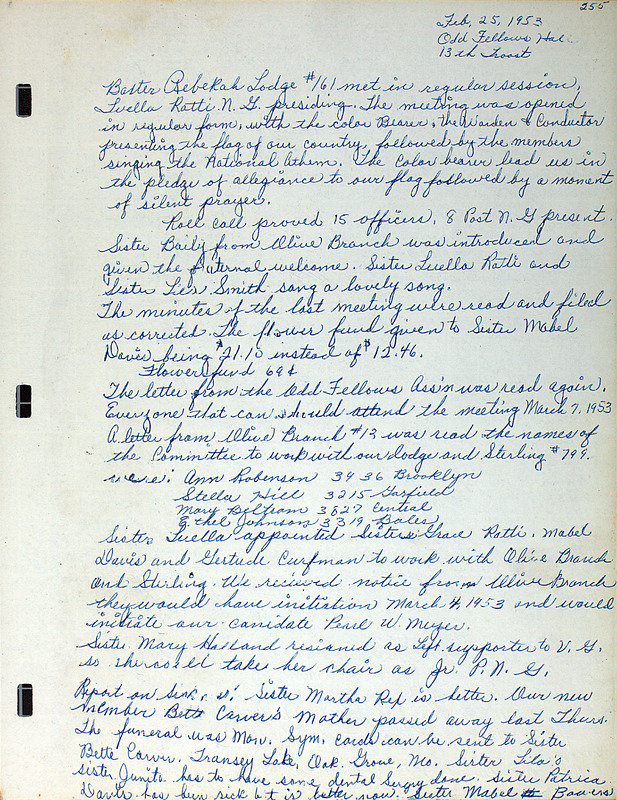 255
Feb, 25, 1953
Odd Fellows Hal
13th Troost
Baxter Rebekah Lodge #161 met in regular session,
Luella Ratti. N. G. presiding. The meeting was opened
in regular form, with the color Bearer, the Warden & Conductor
presenting the flag of our country, followed by the members
singing the National Athem. The Color bearer lead us in
the pledge of allegiance to our flag followed by a moment
of silent prayer.
Roll call proved 15 officers, 8 Past N. G present.
Sister Baily from Olive Branch was introduced and
given the fraternal welcome. Sister Luella Ratti and
Sister Smith sang a lovely song.
The minutes of the last meeting were read and filed
as corrected. The flower fund given to Sister Mabel
Davis being $21.10 instead of $12.46.
Flower fund 69¢
The letter from the Odd Fellows Ass'n was read again.
Everyone that can should attend the meeting March 7, 1953
A letter from Olive Branch #13 was read the names of
the Committee to work with our Lodge and Sterling #799.
were: Ann Robenson 3936 Brooklyn
Stella Hill 3215 Garfield
Mary Beltram 3827 Central
Ethel Johnson 3319 Bales
Sister Luella appointed Sisters Grace Ratti, Mabel
Davis and Gertude Curfman to work with Olive Branch
and Sterling. We recieved notice from Olive Branch
they would have initiation March 4, 1953 and would
initiate our canidate Pearl W. Meyer.
Sister Mary Holland resigned as Left supporter to V. G.
so she could take her chair as Jr. P. N. G.
Report on Sick, Sister Martha Rex is better. Our new
member Bette Carver's Mother passed away last Thurs.
The funeral was Mon. Sym. cards can be sent to Sister
Bette Carver, Lake, Oak Grove, Mo. Sister Lila's
sister Junita has to have some dental done. Sister Petrica
Davis has been sick but is better now. Sister Mabel Bowers